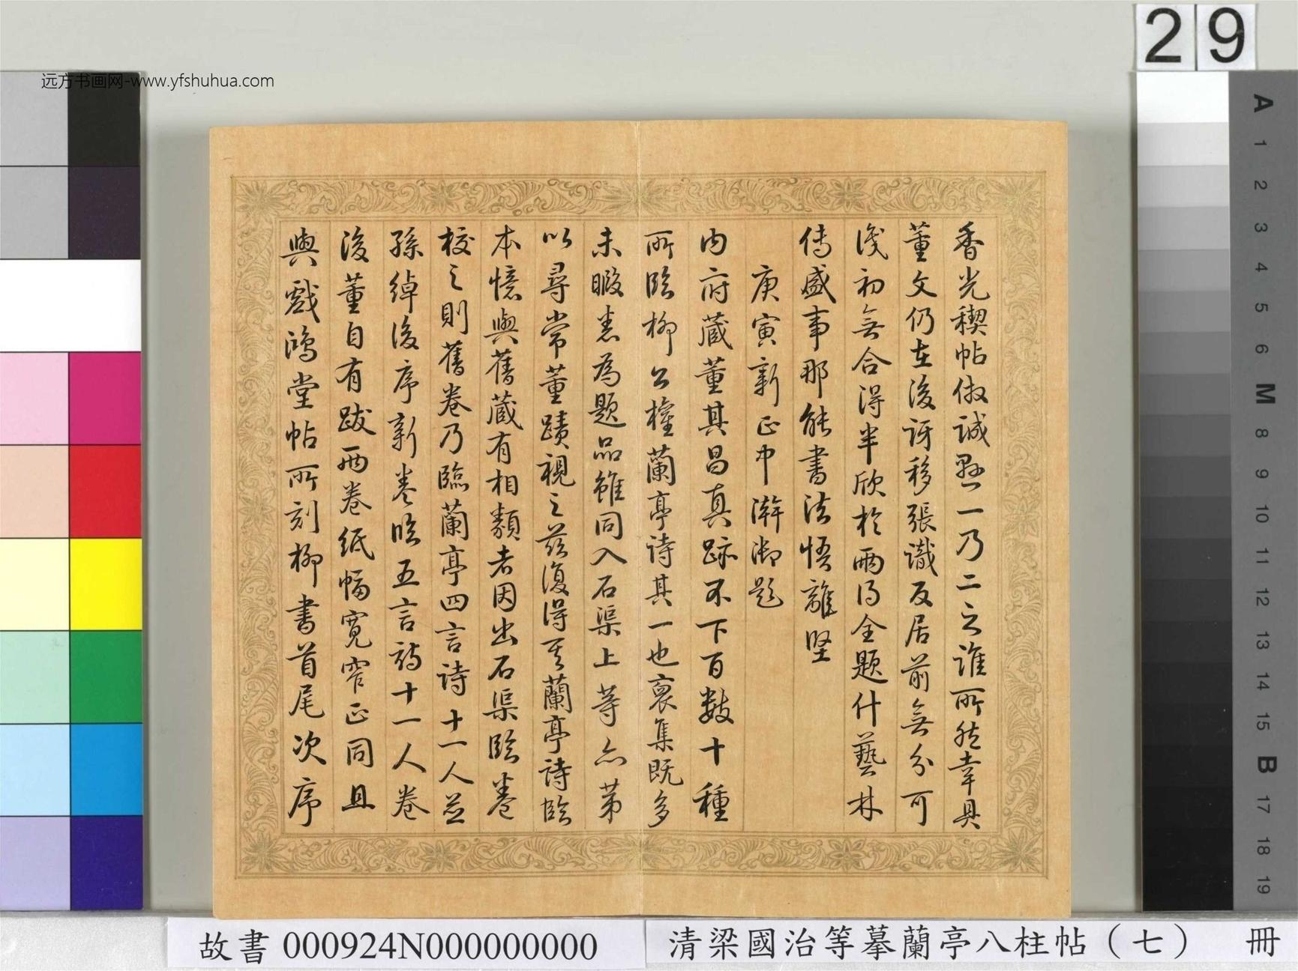 29
远方书画网-www.yfshuhua.com
香光稧帖倣誠懸一乃二之誰所然幸具
董文仍在後訝移張識反居前無分可
淺初無合得半欣於兩得全題什藝林
傳盛事那能書法悟離堅
庚寅新正中澣御題
內府藏董其昌真跡不下百數十種
所臨柳公權蘭亭詩其一也裒集既多
未暇悉為題品雖同入石渠上等亦第
以尋常董蹟視之茲復得其蘭亭詩臨
本憶與舊藏有相類者因出石渠臨卷
校之則舊卷乃臨蘭亭四言詩十一人並
孫綽後序新卷臨五言詩十一人卷
後董自有跋兩卷紙幅寬窄正同且
與戲鴻堂帖所刻柳書首尾次序
A 1 2 3 4 5 6 M 8 9 10 11 12 13 14 15 B 17 18 19
故書 000924N000000000
清梁國治等摹蘭亭八柱帖（七） 冊